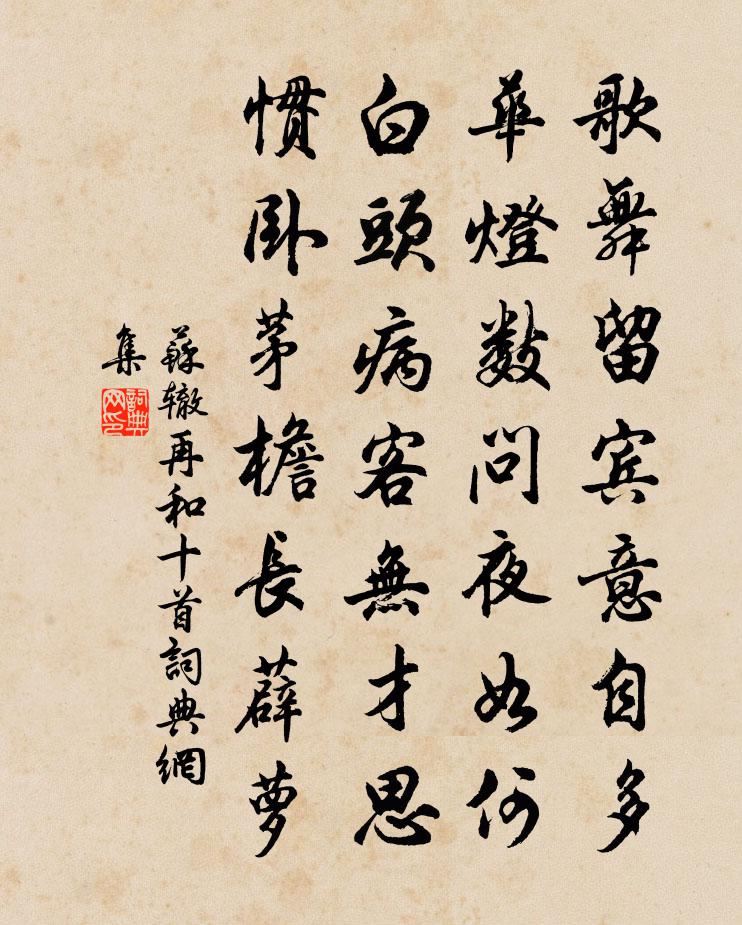 歌舞留賓意自多
華燈數問夜如何
白頭病客無才思
慣卧茅檐長薜萝
蘇辙再和十首詞典網
集
詞典
网印